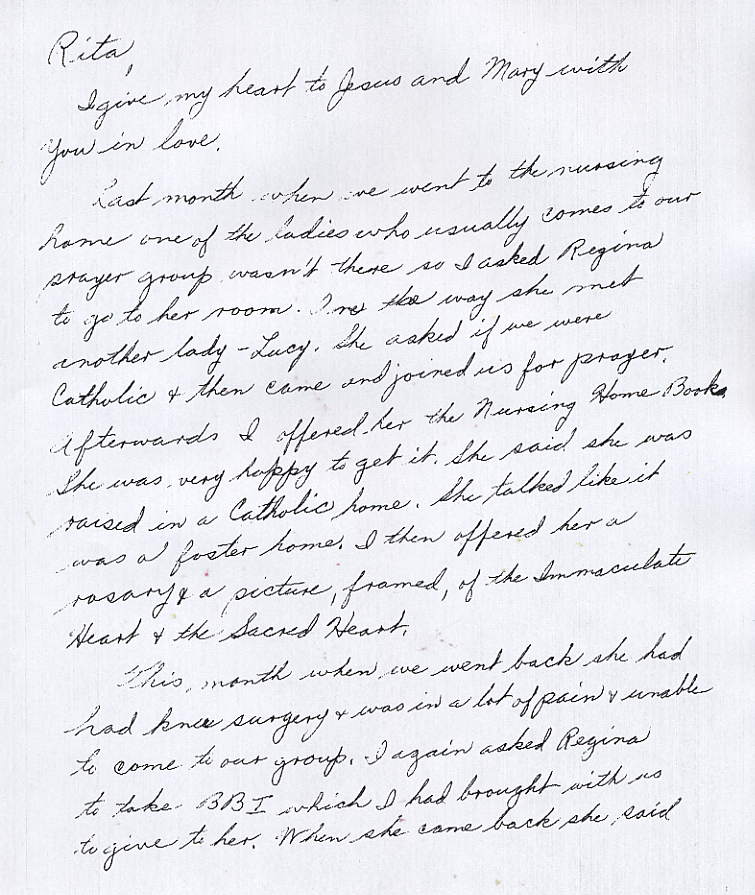 Rita,
I give my heart to Jesus and Mary with
You in love.
Last month when we went to the nursing
home one of the ladies who usually comes to our
prayer group wasn't there so I asked Regina
to go to her room. On the way she met
another lady - Lucy. She asked if we were
Catholic & then came and joined us for prayer.
Afterwards I offered her the Nursing Home Book.
She was very happy to get it. She said she was
raised in a Catholic home. She talked like it
was a foster home. I then offered her a
rosary & a picture, framed, of the Immaculate
Heart & the Sacred Heart.
This month when we went back she had
had knee surgery & was in a lot of pain & unable
to come to our group. I again asked Regina
to take BBI which I had brought with us
to give to her. When she came back she said